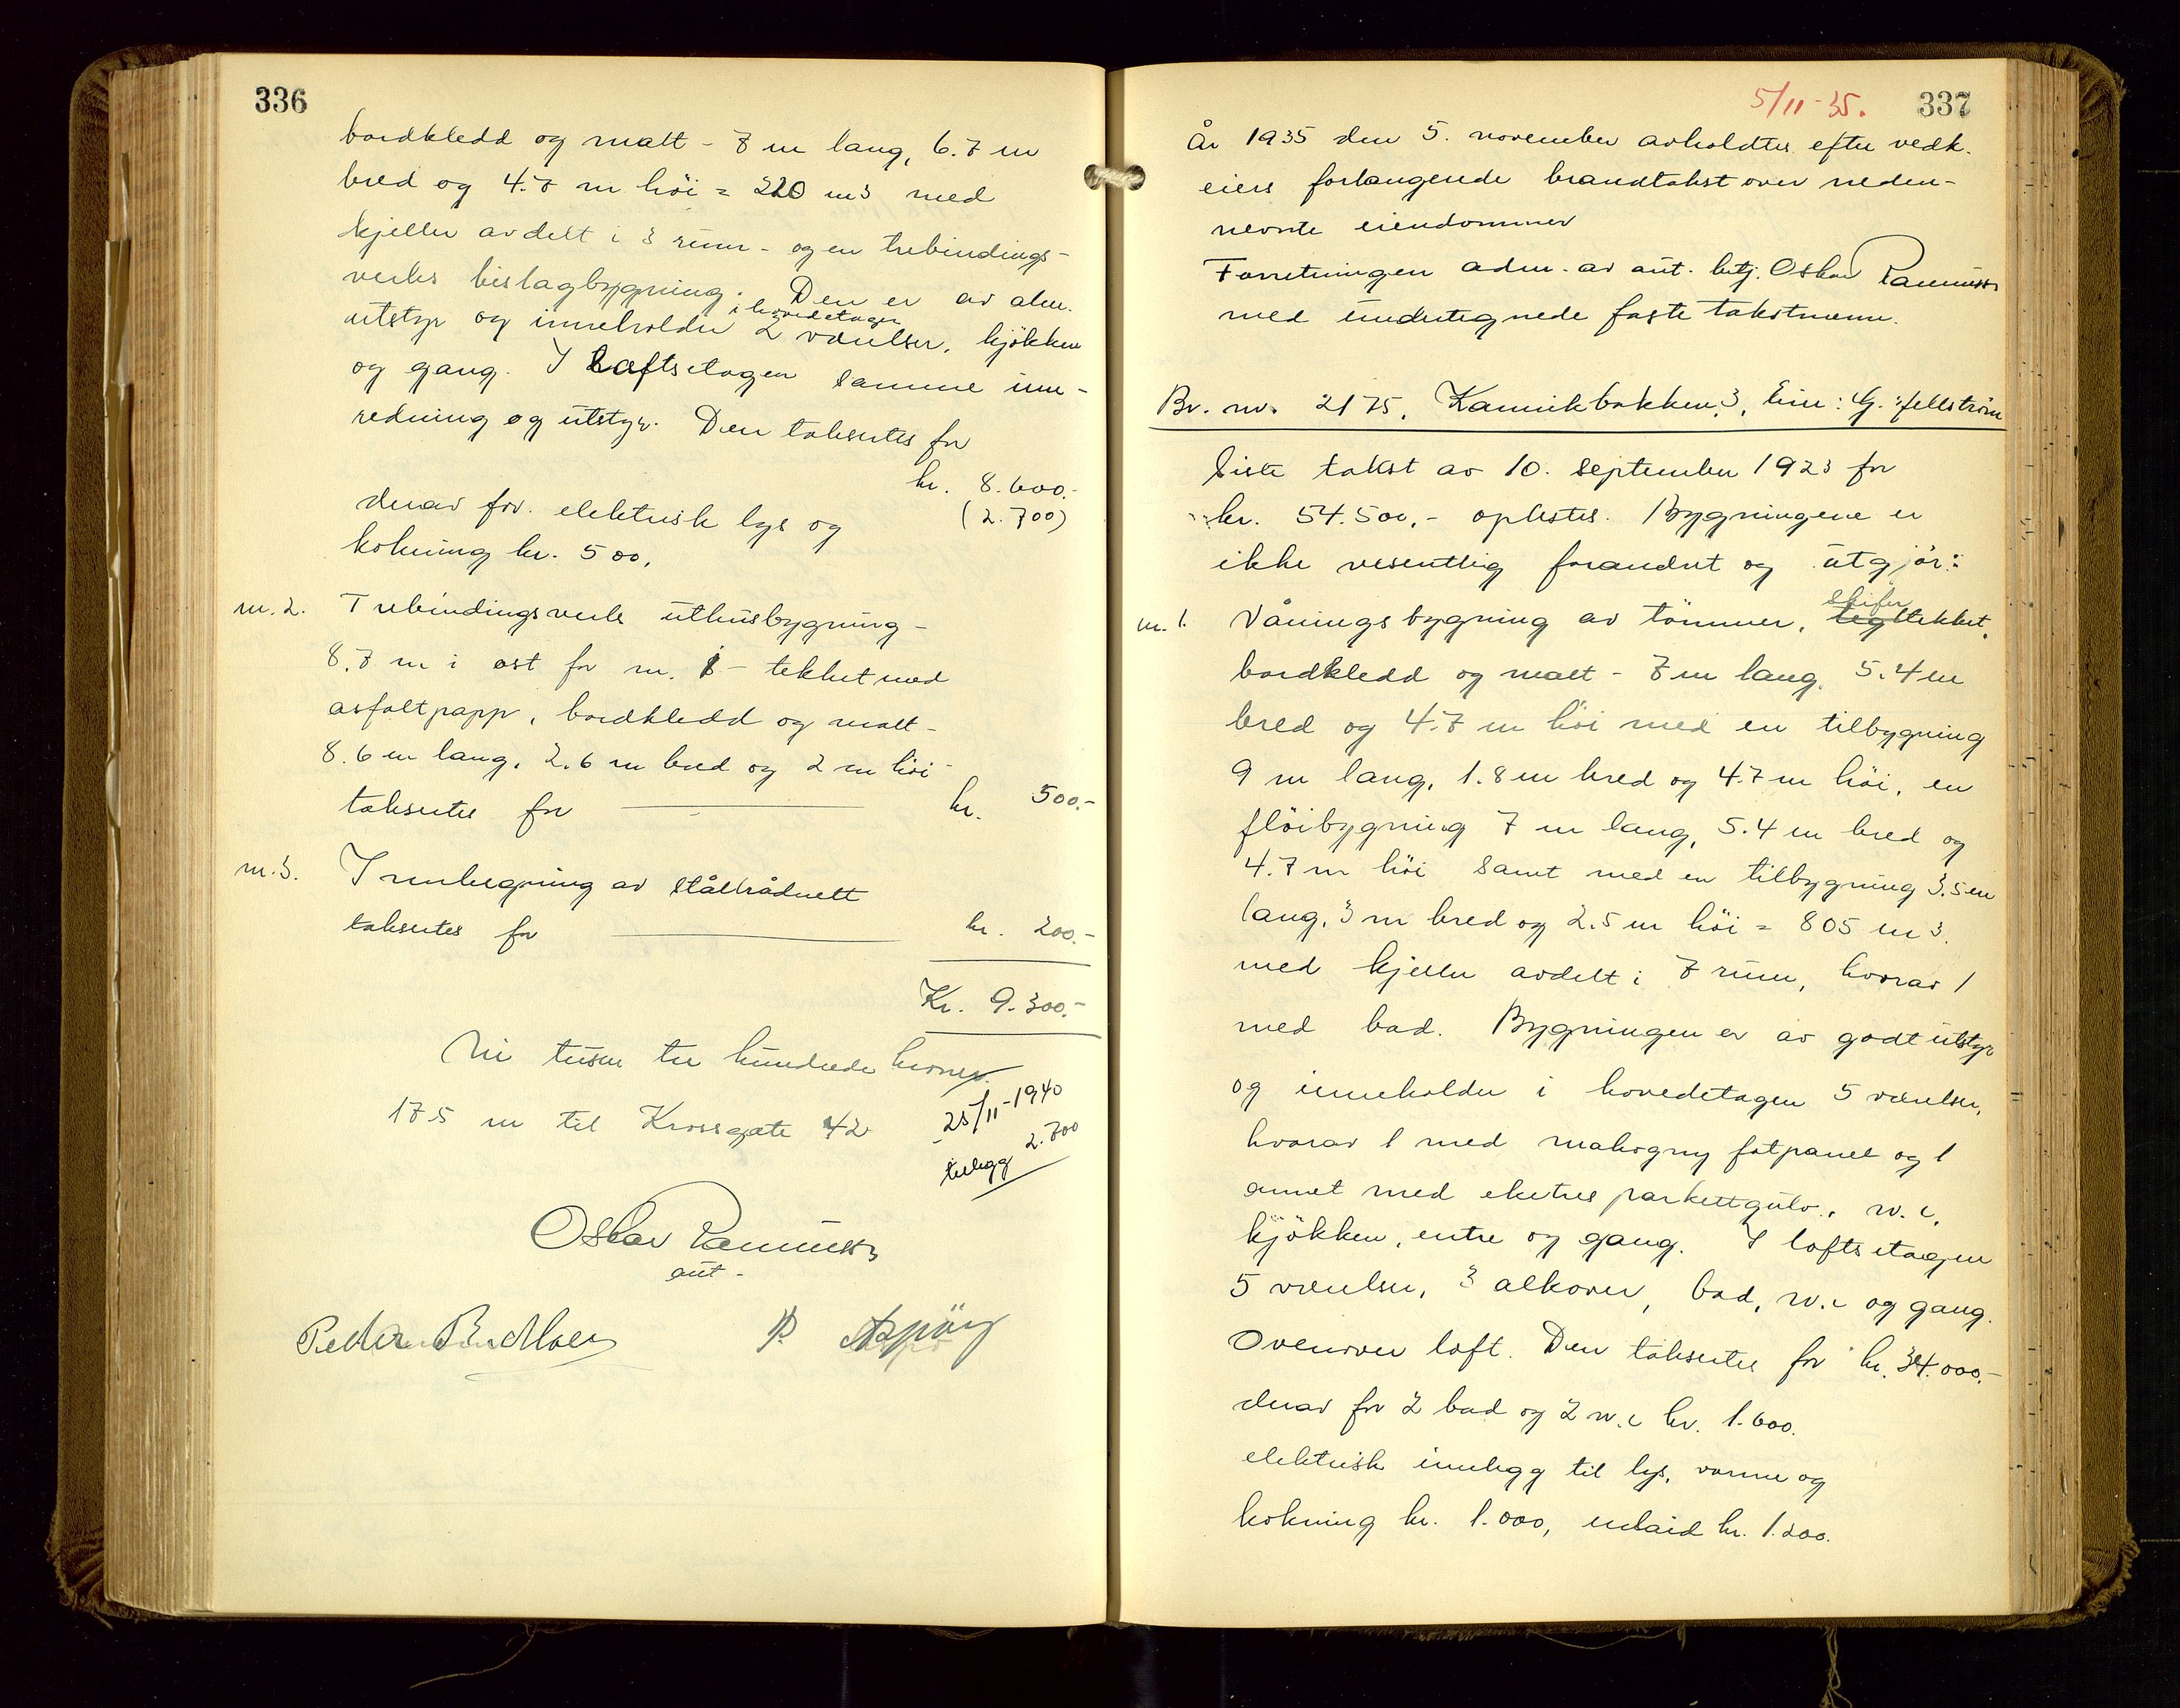 336
bordkledd og malt - 7 m lang, 6.7 m
bred og 4.7 m höi = 220 m3 med
kjeller avdelt i 3 rum - og en trebindings-
verks bislagbygning. Den er av alm.
i hovedetagen
utstyr og inneholder 2 værelser, kjökken
og gang. I Loftsetagen samme inn-
redning og utstyr. Den takseres for
kr. 8.600.-
(2.700)
derav for elektrisk lys og
kokning kr. 500,
nr. 2. Trebindingsverks uthusbygning -
8.7 m i öst for nr. 1 - tekket med
asfaltpapp, bordkledd og malt -
8.6 m lang, 2.6 m bred og 2 m höi -
takseres for kr. 500.-
nr. 3. Innhegning av ståltrådnett
takseres for kr. 200.-
Kr. 9.300.-
Ni tusen tre hundrede kroner.
175 m til Krossgate 42
25/11-1940
tillegg 2.700
Oskar Rasmussen
aut -
Peder B. Moen
P. Aspöy
5/11-35.
337
År 1935 den 5. november avholdtes efter vedk.
eiers forlangende brandtakst over neden-
nevnte eiendommer
Forretningen adm. av aut. betj. Oskar Rasmussen
med undertegnede faste takstmenn.
Br. nr. 2175, Kannikbakken 3, Eier: G. Fjellström
Siste takst av 10. september 1923 for
kr. 54.500,- oplestes. Bygningene er
ikke vesentlig forandret og utgjör:
skifer
nr. 1. Våningsbygning av tömmer, tegltekket,
bordkledd og malt - 7 m lang, 5.4 m
bred og 4.7 m höi med en tilbygning
9 m lang, 1.8 m bred og 4.7 m höi, en
flöibygning 7 m lang, 5.4 m bred og
4.7 m höi samt med en tilbygning 3.5 m
lang, 3 m bred og 2.5 m höi = 805 m3.
med kjeller avdelt i 7 rum, hvorav 1
med bad. Bygningen er av godt utstyr
og inneholder i hovedetagen 5 værelser,
hvorav 1 med mahogny fotpanel og 1
annet med eketres parkettgulv, w.c,
kjökken, entre og gang. I loftsetagen
5 værelser, 3 alkover, bad, w.c og gang.
Ovenover loft. Den takseres for kr. 34.000.-
derav for 2 bad og 2 w.c kr. 1.600.
elektrisk innlegg til lys, varme og
kokning kr. 1.000, kr. 1.200.